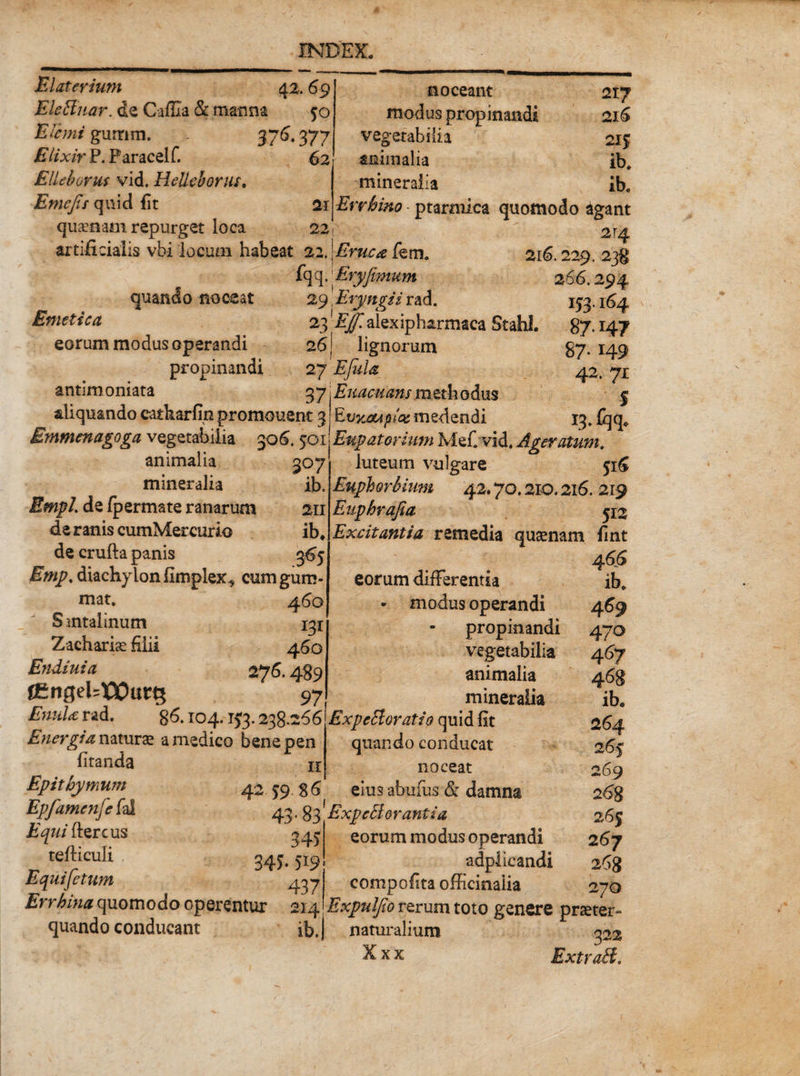 INDEX.
Elaterium 42. 69
Electuar. de Caſſia & manna 50
Elemi gumm. 376. 377
Elixir P. Paracelſ. 62
Elleborus vid. Helleborus.
Emeſis quid ſit 21
quænam repurget loca 22
artificialis vbi locum habeat 22.
ſqq.
quando noceat 29
Emetica 23
eorum modus operandi 26
propinandi 27
antimoniata 37
aliquando catharſin promouent 3
Emmenagoga vegetabilia 306. 501
animalia 307
mineralia ib.
Empl. de ſpermate ranarum 211
de ranis cum Mercurio ib.
de cruſta panis 365
Emp. diachylon ſimplex, cum gum-
mat. 460
Santalinum 131
Zachariæ filii 460
Endiuia 276. 489
Engel-Wurtz 97
Enulæ rad. 86. 104. 153. 238. 266
Energia naturæ a medico bene pen
ſitanda 11
Epithymum 42 59. 86
Epſamenſe ſal 43. 83
Equi ſtercus 345
teſticuli 345. 519
Equiſetum 437
Errhina quomodo operentur 214
quando conducant ib.
noceant 217
modus propinandi 216
vegetabilia 215
animalia ib.
mineralia ib.
Errhino - ptarmica quomodo agant
214
Erucæ ſem. 216. 229. 238
Eryſimum 266. 294
Eryngii rad. 153. 164
Eſſ. alexipharmaca Stahl. 87. 147
lignorum 87. 149
Eſula 42. 71
Euacuans methodus 5
Ευκαιρία medendi 13. ſqq.
Eupatorium Meſ. vid. Ageratum.
luteum vulgare 516
Euphorbium 42. 70. 210. 216. 219
Euphraſia 512
Excitantia remedia quænam ſint
466
eorum differentia ib.
- modus operandi 469
- propinandi 470
vegetabilia 467
animalia 468
mineralia ib.
Expectoratio quid ſit 264
quando conducat 265
noceat 269
eius abuſus & damna 268
Expectorantia 265
eorum modus operandi 267
adplicandi 268
compoſita officinalia 270
Expulſio rerum toto genere præter-
naturalium 322
Xxx Extract.